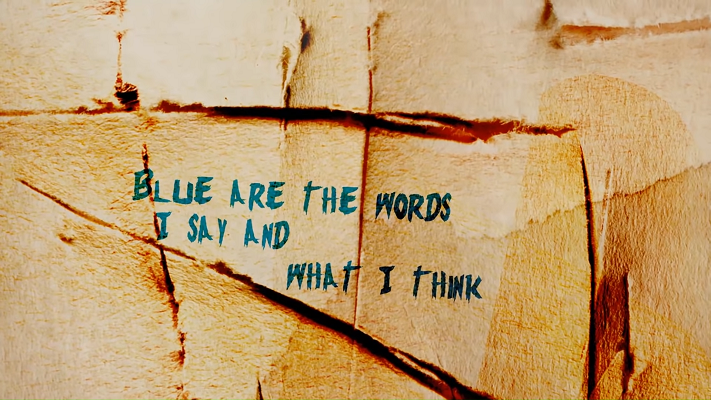 Blue are the words
I say and
what I think